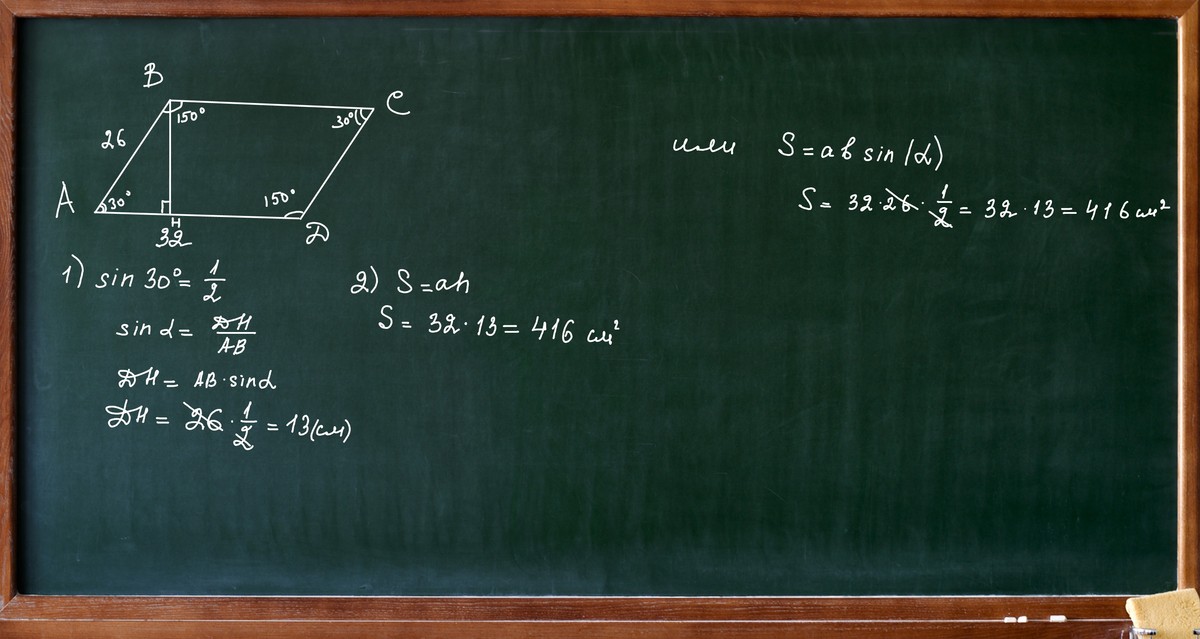 B
C
150°
30°
26
A
30°
150°
H
32
D
1) sin 30° = 1/2
sin α = DH/AB
DH = AB · sin α
DH = 26 · 1/2 = 13 (см)
2) S = ah
S = 32 · 13 = 416 см²
или S = ab sin (α)
S = 32 · 26 · 1/2 = 32 · 13 = 416 см²